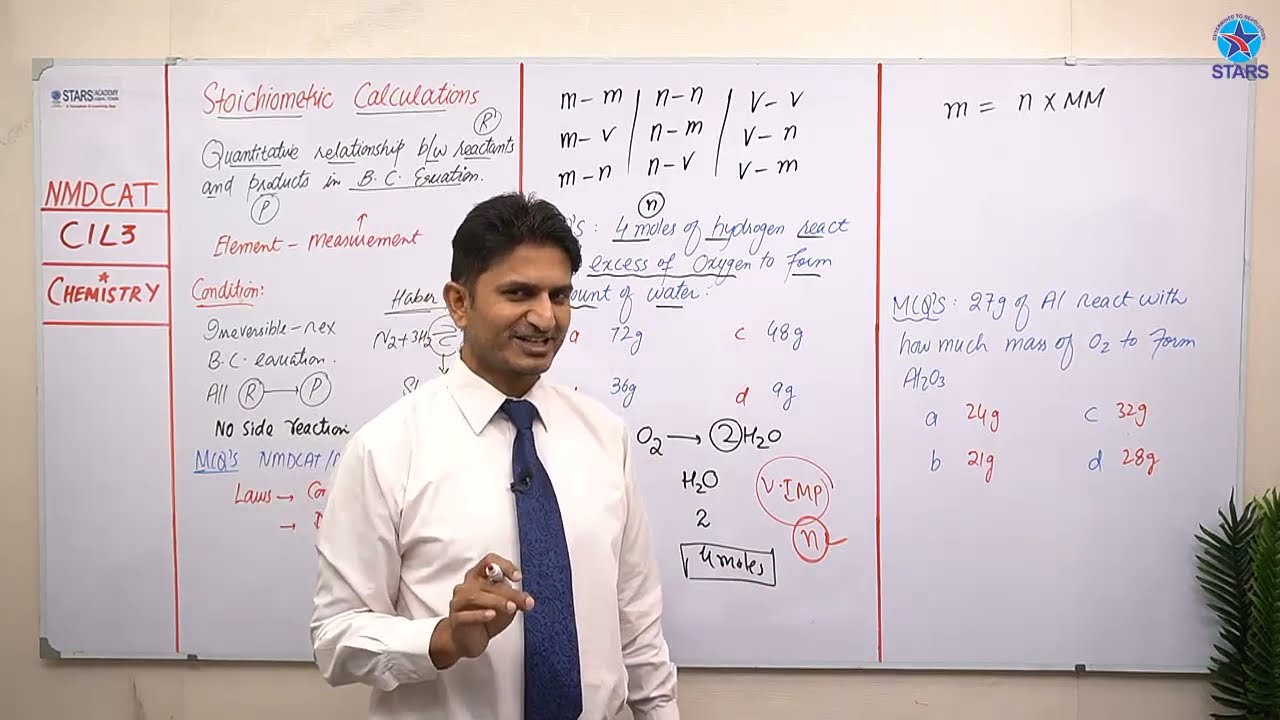 DETERMINED TO REVOLUTION
STARS
STARS ACADEMY
NMDCAT
C1L3
CHEMISTRY
Stoichiometric Calculations
Quantitative relationship b/w reactants
R
and products in B.C. Equation.
P
Element - measurement
Condition:
Irreversible - rex
B.C. equation.
All R → P
No side reaction
MCQ's NMDCAT/
Laws →
→
Haber
N2+3H2
m - m
m - v
m - n
n - n
n - m
n - v
v - v
v - n
v - m
n
'S: 4 moles of hydrogen react
excess of Oxygen to form
of water.
a 72g
c 48g
36g
d 9g
O2 → 2H2O
H2O
2
4 moles
V.IMP
n
m = n x MM
MCQ'S: 27g of Al react with
how much mass of O2 to form
Al2O3
a 24g
c 32g
b 21g
d 28g